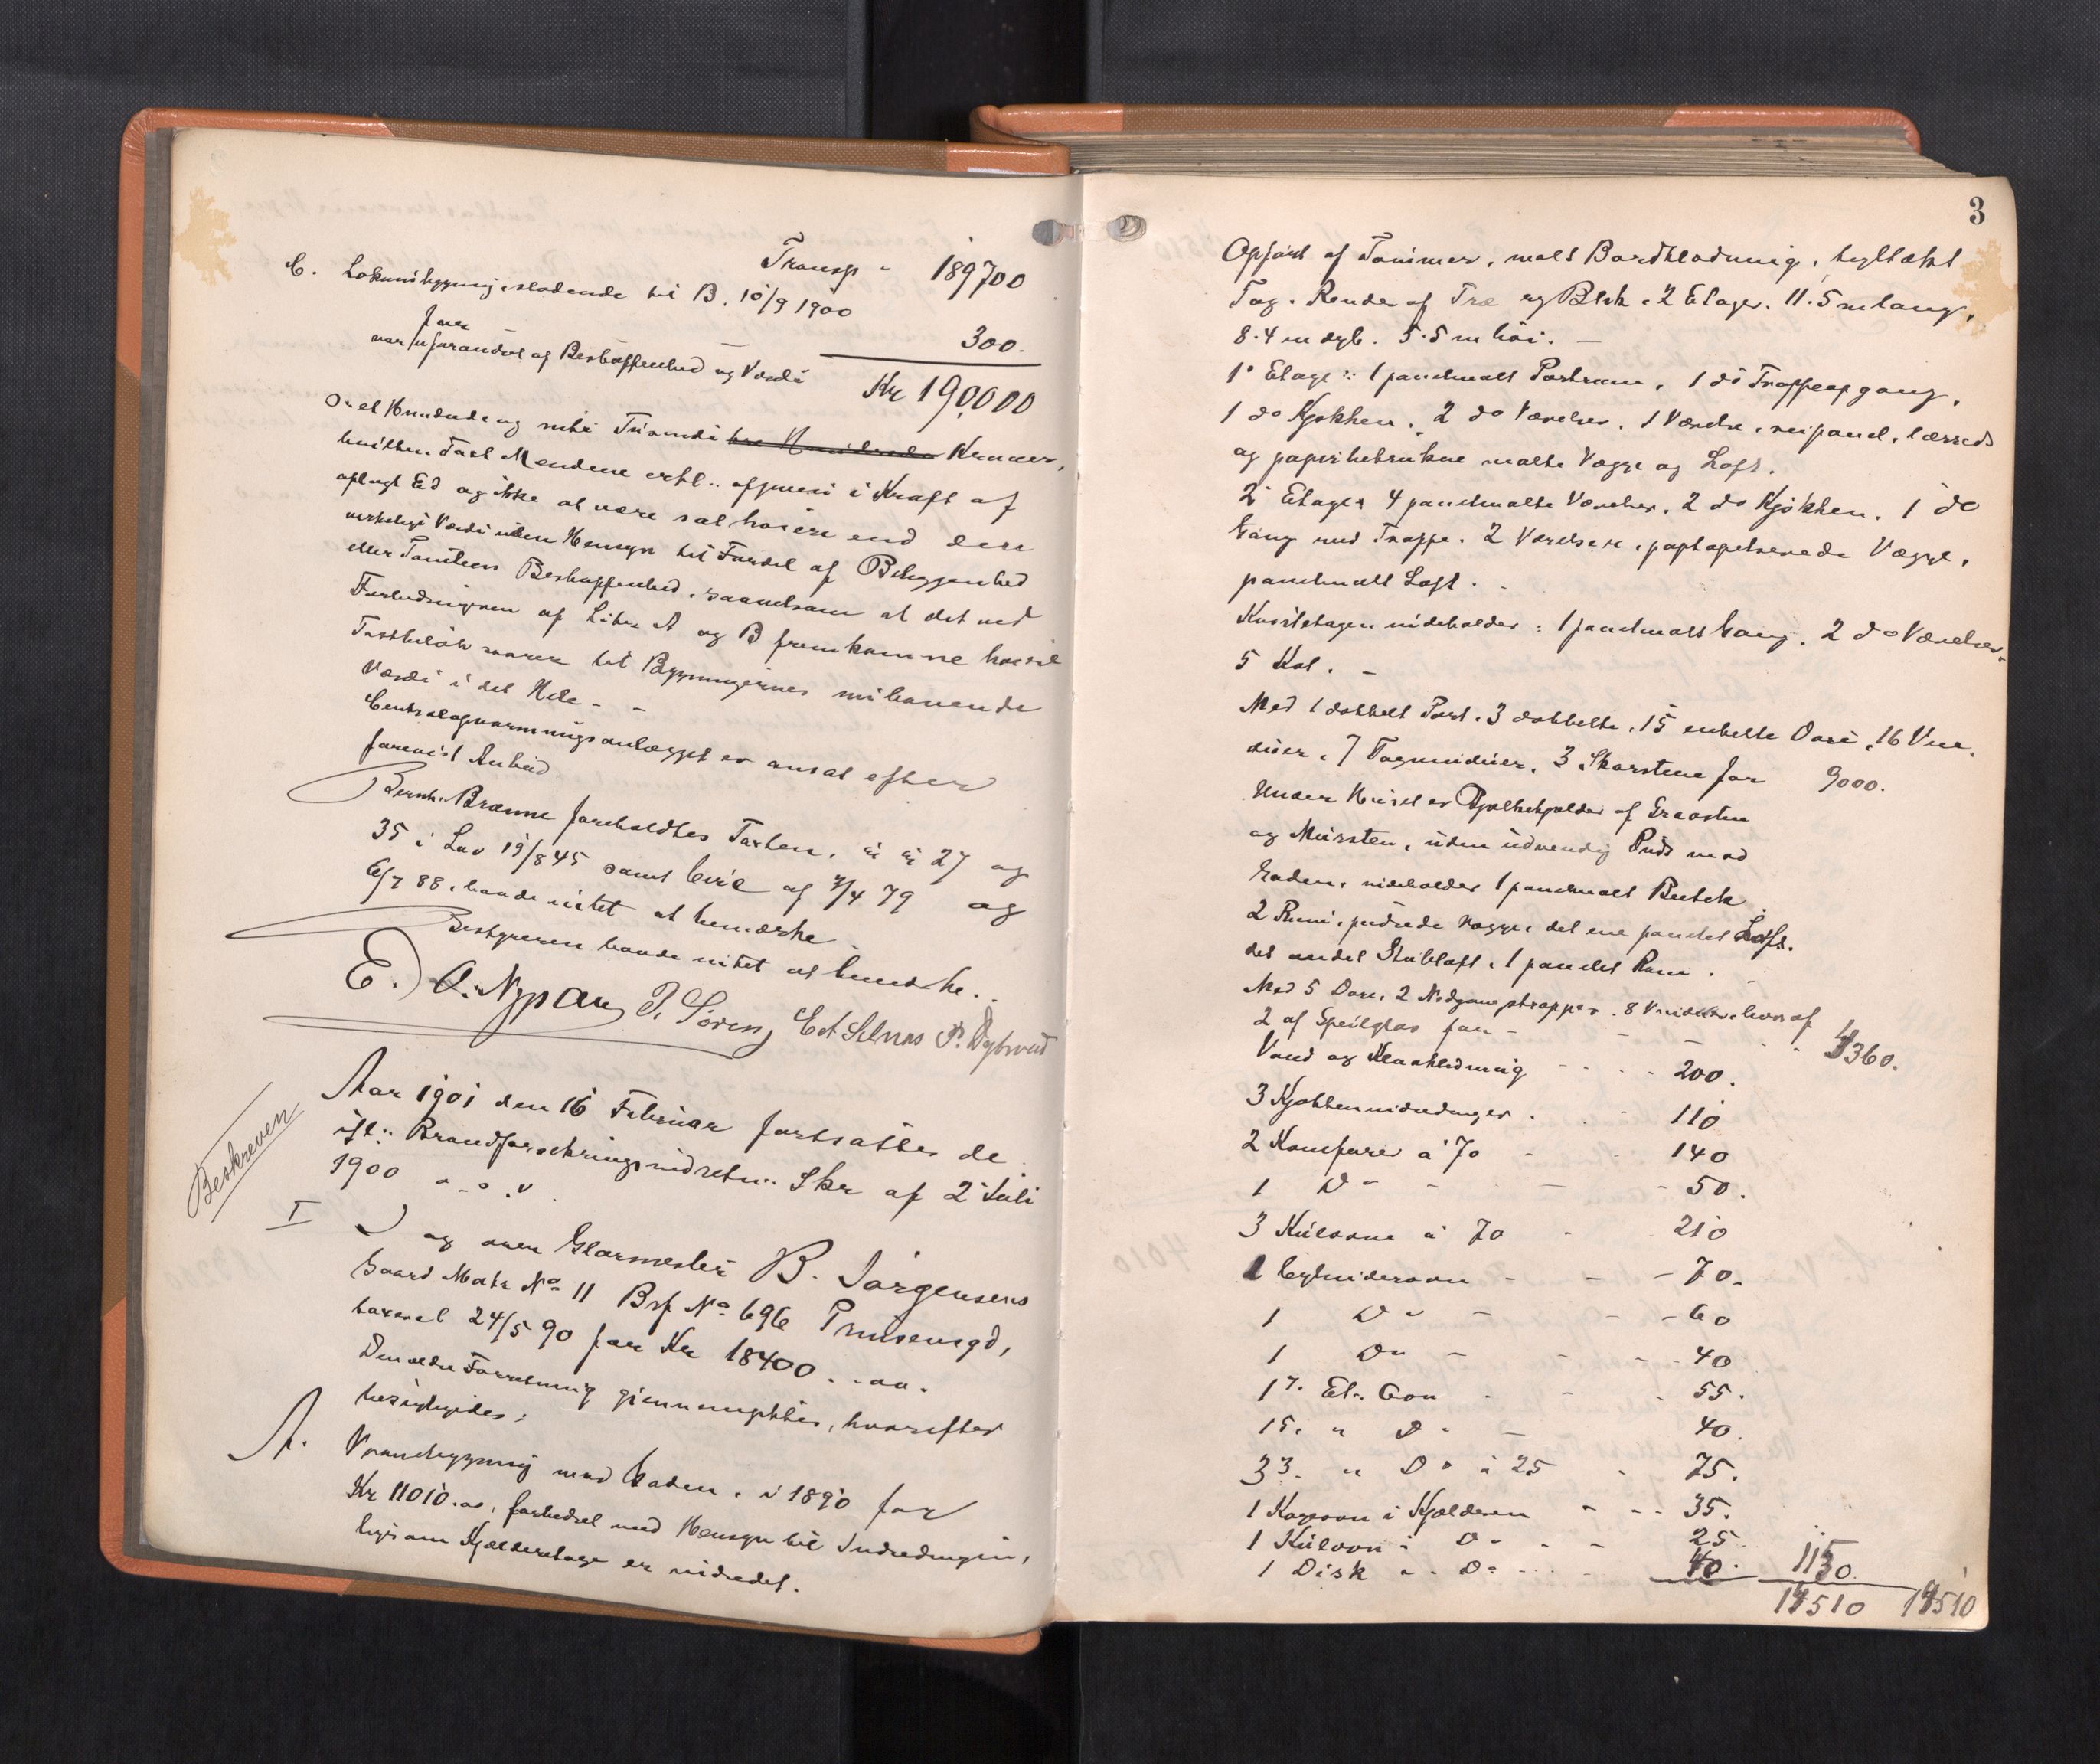 Transp - 189700
C. Lokumsbygning, stødende til B. 10/9 1900
for
300.
var uforandret af Beskaffenhed og Værdi
Kr 190000
Et Hundrede og nitti Tusinde Kroner,
hvilken Taxt Mændene erkl: afgiven i Kraft af
aflagt Ed og ikke at være sat høiere end den
virkelige Værdi uden Hensyn til Fordel af Beliggenhed
eller Tomtens Beskaffenhed, saavelsom at det ved
Forbedringen af Litra A og B fremkomne høiere
Taxtbeløb svarer til Bygningernes iniboende
Værdi i det Hele - -
Centralopvarmingsanlægget er ansat efter
forevist Anbud
Bernh. Brænne foreholdtes Taxten, §§ 27 og
35 i Lov 19/8 45 samt Circ af 4/4 79 og
6/7 88, havde intet at bemærke
Bestyreren havde intet at bemærke.
E. O. Nypan P. Søren Edt Selnæs P. Dybwad
Beskreven
Aar 1901 den 16 Februar fortsattes de
ifl: Brandforsikringsindretn: Skr af 2 Juli
1900 o.s.v
I
og over Glarmester B. Jørgensens
Gaard Matr No 11 Bsf No 696 Prinsensgd,
taxeret 24/5 90 for Kr 18400. - oo.
Den ældre Forretning gjennemgikkes, hvorefter
besigtigedes:
A. Vaanebygning mod Gaden, i 1890 for
Kr 11010.oo, forbedret med Hensyn til Indredningen,
ligesom Kjælderetage er indredet.
3
Opført af Tømmer, malt Bordklædning, tegltækt
Tag. Render af Træ og Blik. 2 Etager. 11.5 m lang,
8.4 m dyb. 5.5 m høi. -
1' Etage: 1 panelmalt Portrum, 1 do Trappeopgang,
1 do Kjøkken, 2 do Værelser, 1 Værelse, panel, lærreds
og papirbetrukne malte Vægge og Loft.
2' Etage: 4 panelmalte Værelser, 2 do Kjøkken, 1 do
Gang med Trappe. 2 Værelser, paptapetserede Vægge,
panelmalt Loft.
Kvistetagen indeholder: 1 panelmalt Gang, 2 do Værelser,
5 Kot. -
Med 1 dobbelt Port, 3 dobbelte, 15 enkelte Døre, 16 Vin
duer, 7 Tagvinduer, 3 Skorstene for 9000.
Under Huset er Hjelkekjelder af Graasten
og Mursten, uden udvendig Puds mod
Gaden, indeholder 1 panelmalt Butik
2 Rum, pudsede Vægge, det ene panelet Loft.
det andet Stubloft, 1 panelet Rum.
Med 5 Døre, 2 Nedgangstrapper. 8 Vinduer, hvoraf
2 af Speilglas for - - - 4360.
Vand og Kloakledning - - - - 200.
3 Kjøkkenindredninger - - 110
2 Komfurer à 70 - - 140
1 Do - - - 50.
3 Kulovne à 70 - 210
1 Cylinderovn - - - 70.
1 Do - - - 60
1 Do - - - 40
1 7. Et. Ovn - - 55.
1 5. " Do - 40.
3 3. " Do à 25 - 75.
1 Kogeovn i Kjælderen - - 35.
1 Kulovn i Do - - 25
1 Disk i Do - - 40. 1150.
14510 14510